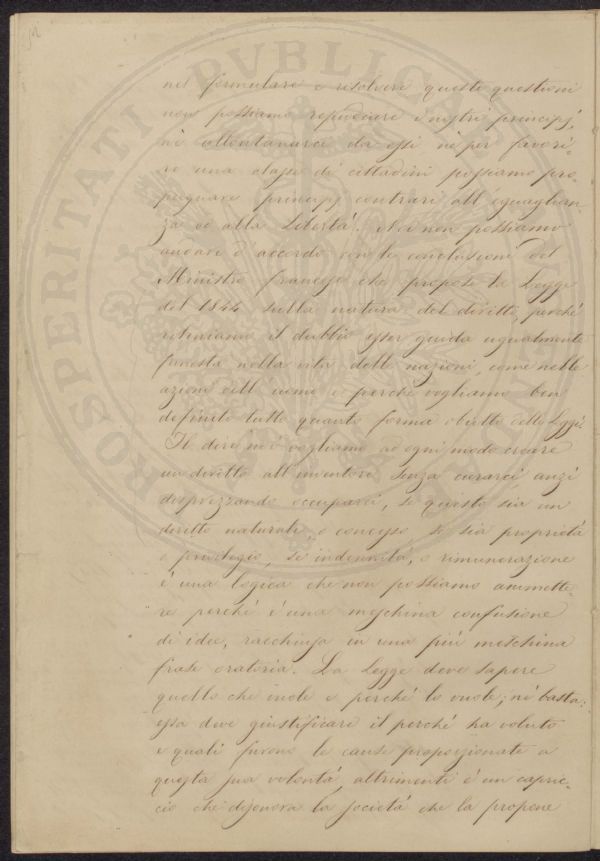 nel formulare e risolvere queste questioni
non possiamo repudiare i nostri principj,
nè allontanarci da essi nè per favori-
re una classe di cittadini possiamo pro-
pugnare principj contrari all'eguaglian-
za od alla Libertà. Noi non possiamo
andare d'accordo con le conclusioni del
Ministro francese che propose la Legge
del 1844 sulla natura del diritto, perchè
riteniamo il dubbio esser guida ugualmente
funesta nella vita delle nazioni, come nelle
azioni dell'uomo e perchè vogliamo ben
definito tutto quanto forma obietto delle Leggi.
Il dire, noi vogliamo ad ogni modo creare
un diritto all'inventore senza curarci anzi
disprezzando occuparci, se questo sia un
diritto naturale, o concesso se sia proprietà
o privilegio, se indennità, o rimunerazione
è una logica che non possiamo ammette-
re perchè è una meschina confusione
di idee, racchiusa in una più meschina
frase oratoria. La Legge deve sapere
quello che vuole e perchè lo vuole; nè basta:
essa deve giustificare il perchè ha voluto
e quali furono le cause proporzionate a
questa sua volontà, altrimenti è un capric-
cio che disonora la società che la propone
PROSPERITATI PVBLICAE